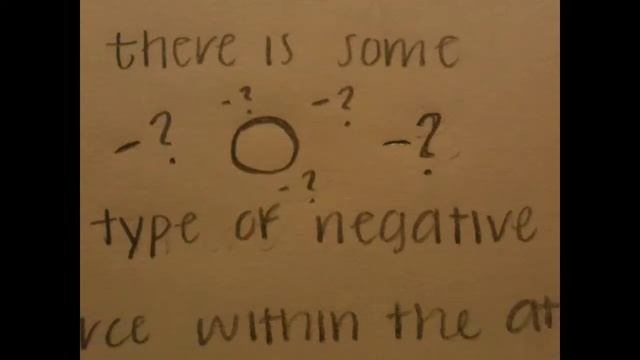 there is some
-? -? -? -?
-?
type of negative
rce within the at